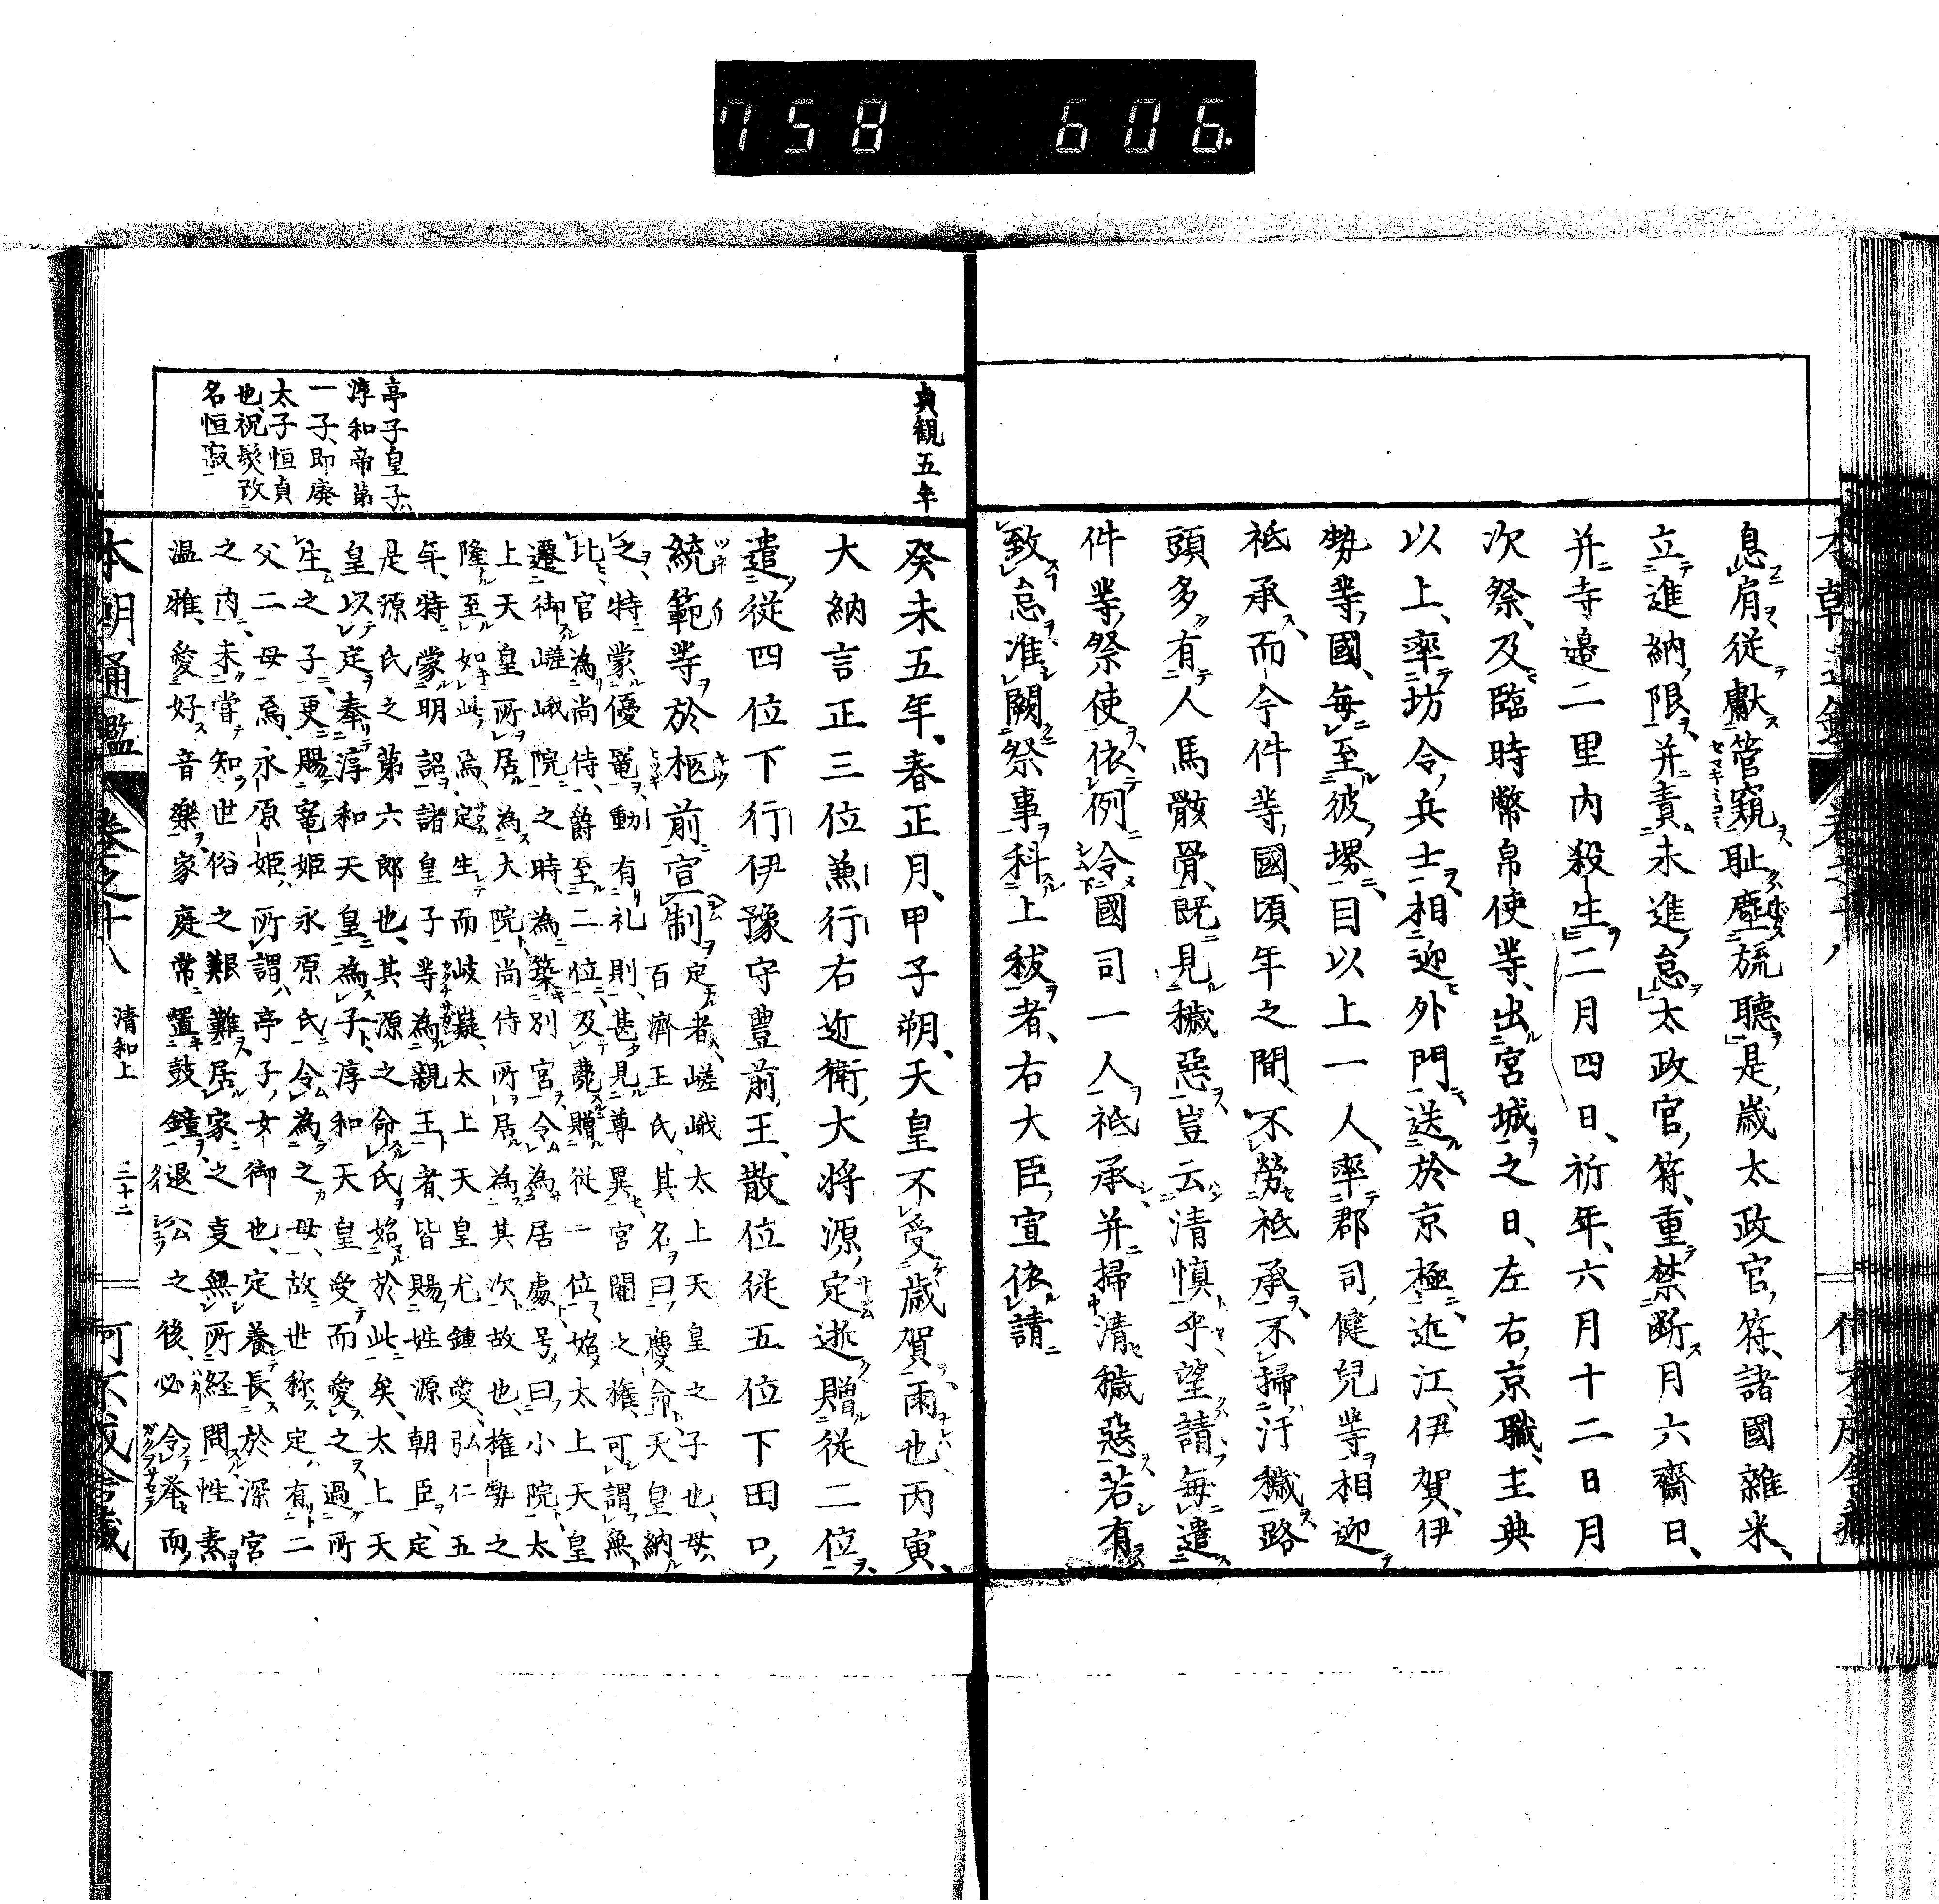 758 606.
息肩、従獻管窺耻塵旒聽是歳太政官符、諸國雜米、
立進納限、并責未進怠太政官符、重禁断月六齋日、
并寺邉二里内殺生二月四日、祈年、六月十二日月
次祭、及臨時幣帛使等、出宮城之日、左右京職、主典
以上、率坊令兵士相迎外門、送於京極、近江、伊賀、伊
勢等國、毎至彼堺、目以上一人、率郡司健兒等相迎
祗承、而今件等國、頃年之間、不勞祗承、不掃汙穢路
頭多有人馬骸骨、既見穢惡、豈云清慎乎、望請毎遣
件等祭使、依例令國司一人祗承、并掃清穢惡、若有
致怠准闕祭事、科上秡者、右大臣宣依請
貞観五年
癸未五年、春正月、甲子朔、天皇不受歳賀雨也丙寅、
大納言正三位兼行右近衛大将源定逝贈従二位、
遣従四位下行伊豫守豊前王、散位従五位下田口
統範等於柩前宣制
定者、嵯峨太上天皇之子也、母、
百濟王氏、其名曰慶命天皇納
之、特蒙優寵、動有礼則、甚見尊異、宮闈之権、可謂無
比、官為尚侍、爵至二位、及薨贈従一位、始太上天皇
遷御嵯峨院之時、為築別宮、令為居處号曰小院、太
上天皇所居為大院、尚侍所居為其次、故也、権勢之
隆至如此焉、定生而岐嶷、太上天皇尤鍾愛、弘仁五
年、特蒙明詔、諸皇子等為親王者、皆賜姓源朝臣、定
是源氏之第六郎也、其源之命氏始於此矣、太上天
皇以定奉淳和天皇為子、淳和天皇受而愛之、過所
生之子、更賜寵姫永原氏令為之母、故世称定、有二
父二母焉、永原姫、所謂亭子女御也、定養長於深宮
之内、未嘗知世俗之艱難、居家之支無所経問、性素
温雅、愛好音樂、家庭常置鼓鐘、退公之後、必令挙而
亭子皇子、
淳和帝第
一子、即廢
太子恒貞
也、祝髪改
名恒寂
本朝通鑑 巻之十八 清和上 三十二